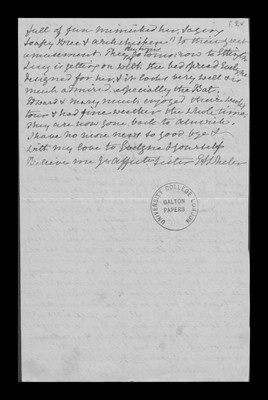 full of fun mimicked her, saying
Soapy
amusement. They go tomorrow to
Lucy is getting on with the bed spread
designed for her, & it looks very well & is
much admired, especially the Bat.
Edward & Mary much enjoyed their
tour & had fine weather the whole time.
They are now gone back to Alnwick.
I have no more news so good bye &
with my love to & yourself
Believe me yr Affecte Sister
UNIVERSITY COLLEGE LONDON
GALTON
PAPERS